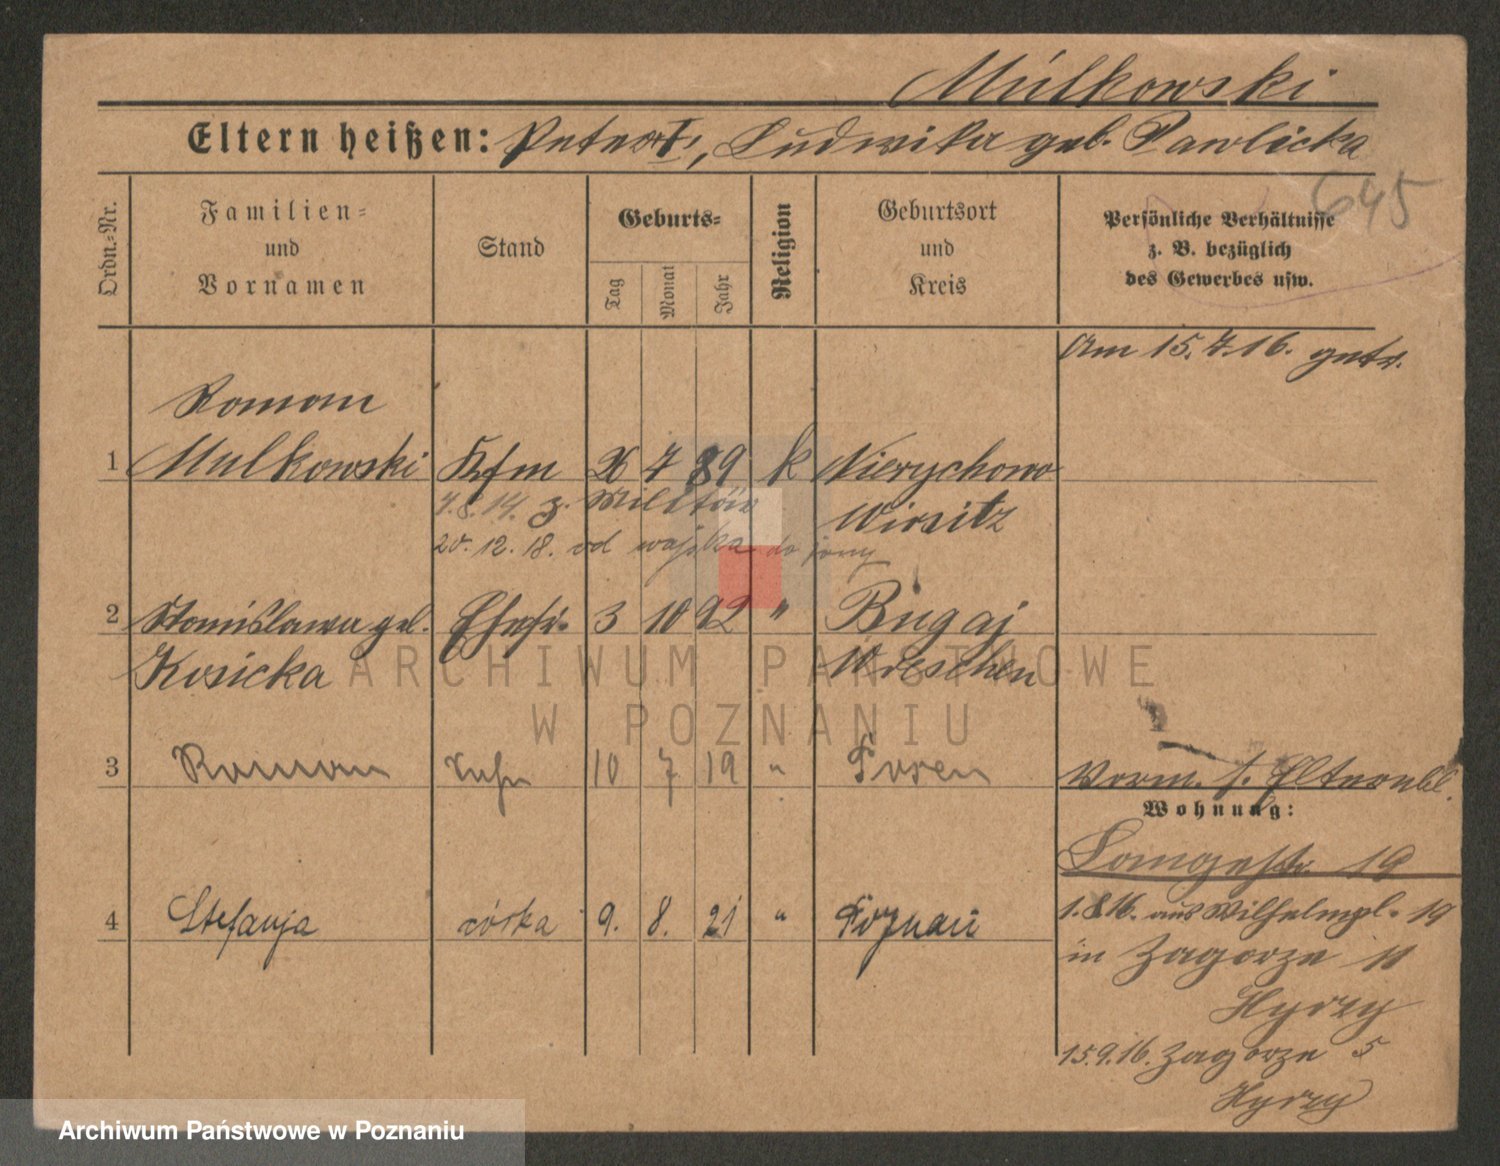 Mulkowski
Eltern heißen: Peter †, Ludwika geb. Pawlicka
645
Ordn.=Nr.
Familien=
und
Vornamen
Stand
Geburts=
Tag
Monat
Jahr
Religion
Geburtsort
und
Kreis
Persönliche Verhältnisse
z. B. bezüglich
des Gewerbes usw.
Am 15.7.16. getr.
Roman
1 Mulkowski Kfm 7 89 k Nierychowo
4.8.14. z. Militär Wirsitz
20.12.18. od wojska do żony
2 Stanislawa geb. Ehefr. 3 10 92 " Bugaj
Kosicka Wreschen
3 Roman Sohn 10 7 19 " Posen
Vorm. s. Elternbl.
Wohnung:
Langestr. 19
4 Stefanja córka 9. 8. 21 " Poznań
1.8.16. aus Wilhelmpl. 19
in Zagorze 11
Hyrzy
15.9.16. Zagorze 5
Hyrzy
ARCHIWUM PAŃSTWOWE
W POZNANIU
Archiwum Państwowe w Poznaniu